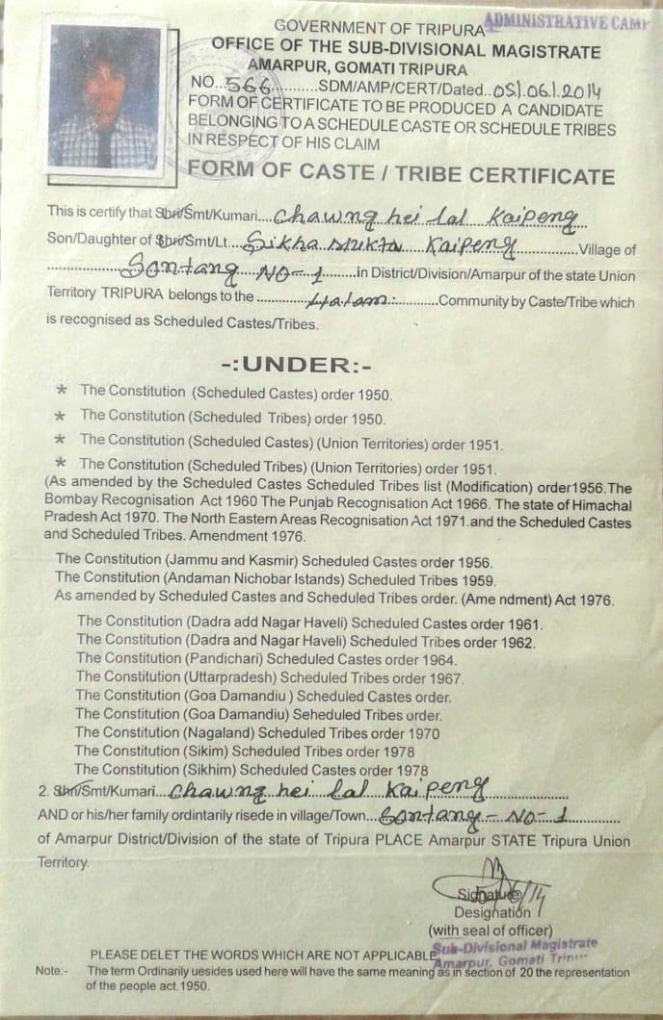 GOVERNMENT OF TRIPURA ADMINISTRATIVE CAMP
OFFICE OF THE SUB-DIVISIONAL MAGISTRATE
AMARPUR, GOMATI TRIPURA
NO..566..........SDM/AMP/CERT/Dated..05/.06/.2014
FORM OF CERTIFICATE TO BE PRODUCED A CANDIDATE
BELONGING TO A SCHEDULE CASTE OR SCHEDULE TRIBES
IN RESPECT OF HIS CLAIM
FORM OF CASTE / TRIBE CERTIFICATE
This is certify that Shri/Smt/Kumari....Chawng hei lal Kaipeng
Son/Daughter of Shri/Smt/Lt....Sikha Mukta Kaipeng..........Village of
..................Sontang NO-1..........in District/Division/Amarpur of the state Union
Territory TRIPURA belongs to the ............Halam:..........Community by Caste/Tribe which
is recognised as Scheduled Castes/Tribes.
-:UNDER:-
* The Constitution (Scheduled Castes) order 1950.
* The Constitution (Scheduled Tribes) order 1950.
* The Constitution (Scheduled Castes) (Union Territories) order 1951.
* The Constitution (Scheduled Tribes) (Union Territories) order 1951.
(As amended by the Scheduled Castes Scheduled Tribes list (Modification) order1956.The
Bombay Recognisation Act 1960 The Punjab Recognisation Act 1966. The state of Himachal
Pradesh Act 1970. The North Eastern Areas Recognisation Act 1971.and the Scheduled Castes
and Scheduled Tribes. Amendment 1976.
The Constitution (Jammu and Kasmir) Scheduled Castes order 1956.
The Constitution (Andaman Nichobar Istands) Scheduled Tribes 1959.
As amended by Scheduled Castes and Scheduled Tribes order. (Ame ndment) Act 1976.
The Constitution (Dadra add Nagar Haveli) Scheduled Castes order 1961.
The Constitution (Dadra and Nagar Haveli) Scheduled Tribes order 1962.
The Constitution (Pandichari) Scheduled Castes order 1964.
The Constitution (Uttarpradesh) Scheduled Tribes order 1967.
The Constitution (Goa Damandiu ) Scheduled Castes order.
The Constitution (Goa Damandiu) Seheduled Tribes order.
The Constitution (Nagaland) Scheduled Tribes order 1970
The Constitution (Sikim) Scheduled Tribes order 1978
The Constitution (Sikhim) Scheduled Castes order 1978
2. Shri/Smt/Kumari...Chawng hei lal Kaipeng..................
AND or his/her family ordintarily risede in village/Town...Sontang - NO-1..........
of Amarpur District/Division of the state of Tripura PLACE Amarpur STATE Tripura Union
Territory.
Signature
Designation
(with seal of officer)
Sub-Divisional Magistrate
Amarpur, Gomati
PLEASE DELET THE WORDS WHICH ARE NOT APPLICABLE
Note:- The term Ordinarily uesides used here will have the same meaning as in section of 20 the representation
of the people act.1950.